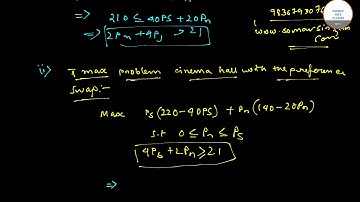 => 210 ≤ 40Ps + 20Pn
=> 2Pn + 4Ps > 21
www.somansir
com
ii) π max problem cinema hall with the preference
swap:-
Max Ps(220-40Ps) + Pn(140-20Pn)
s.t 0 ≤ Pn ≤ Ps
4Ps + 2Pn ≥ 21
=>